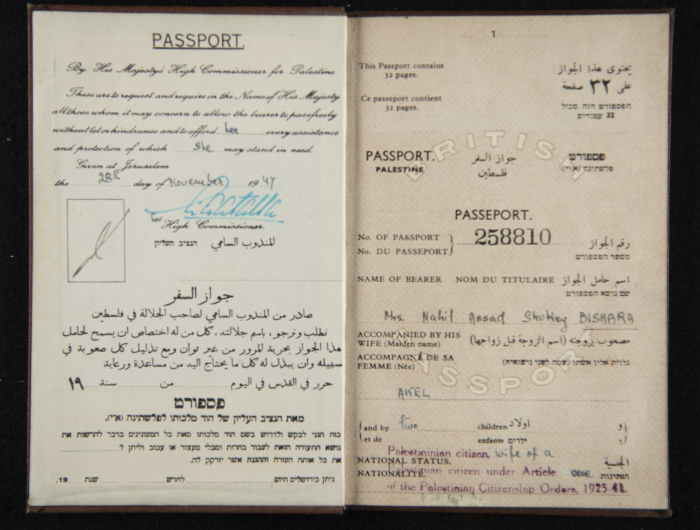 PASSPORT.
By His Majesty's High Commissioner for Palestine
These are to request and require in the Name of His Majesty
all those whom it may concern to allow the bearer to pass freely
without let or hindrance and to afford her every assistance
and protection of which she may stand in need.
Given at Jerusalem
the 28th day of November 1947
for High Commissioner.
المندوب السامي הנציב העליון
جواز السفر
صادر من المندوب السامي لصاحب الجلالة في فلسطين
نطلب ونرجو، باسم جلالته، كل من له اختصاص ان يسمح لحامل
هذا الجواز بحرية المرور من غير توان ومع تذليل كل صعوبة في
سبيله وان يبذل له كل ما يحتاج اليه من مساعدة ورعاية
حرر في القدس في اليوم من سنة ١٩
פספורט
מאת הנציב העליון של הוד מלכותו לפלשתינה (א״י).
הנה הנני לבקש ולדרוש בשם הוד מלכותו מאת כל הממונים בדבר להרשות את
נושא התעודה הזאת לעבור בחרות ומבלי מעצור או עכוב וליתן לו
את כל אותה העזרה וההגנה אשר יזדקק לה.
ניתן בירושלים היום לחדש שנת 19.
1
This Passport contains
32 pages.
يحتوي هذا الجواز
على ٣٢ صفحة
Ce passeport contient
32 pages.
הפספורט הזה מכיל
32 עמודים
BRITISH
PASSPORT.
PALESTINE
جواز السفر
فلسطين
פספורט
פלשתינה (א״י)
PASSEPORT.
No. OF PASSPORT
No. DU PASSEPORT
258810
رقم الجواز
מספר הפספורט
NAME OF BEARER NOM DU TITULAIRE اسم حامل الجواز
שם נושא הפספורט
Mrs. Nahil Assad Shukry BISHARA
ACCOMPANIED BY HIS
WIFE (Maiden name)
مصحوب بزوجته (اسم الزوجة قبل زواجها)
ACCOMPAGNÉ DE SA
FEMME (Née)
נלוית אליו אשתו (שמה לפני נישואיה)
PASSPORT
AKEL
and by two children اولاد و
et de enfants ילדים ו
Palestininian citizen, wife of a
NATIONAL STATUS. الجنسية
NATIONALITÉ הנתינות
Palestinian citizen under Article one
of the Palestinian Citizenship Orders, 1925-41.